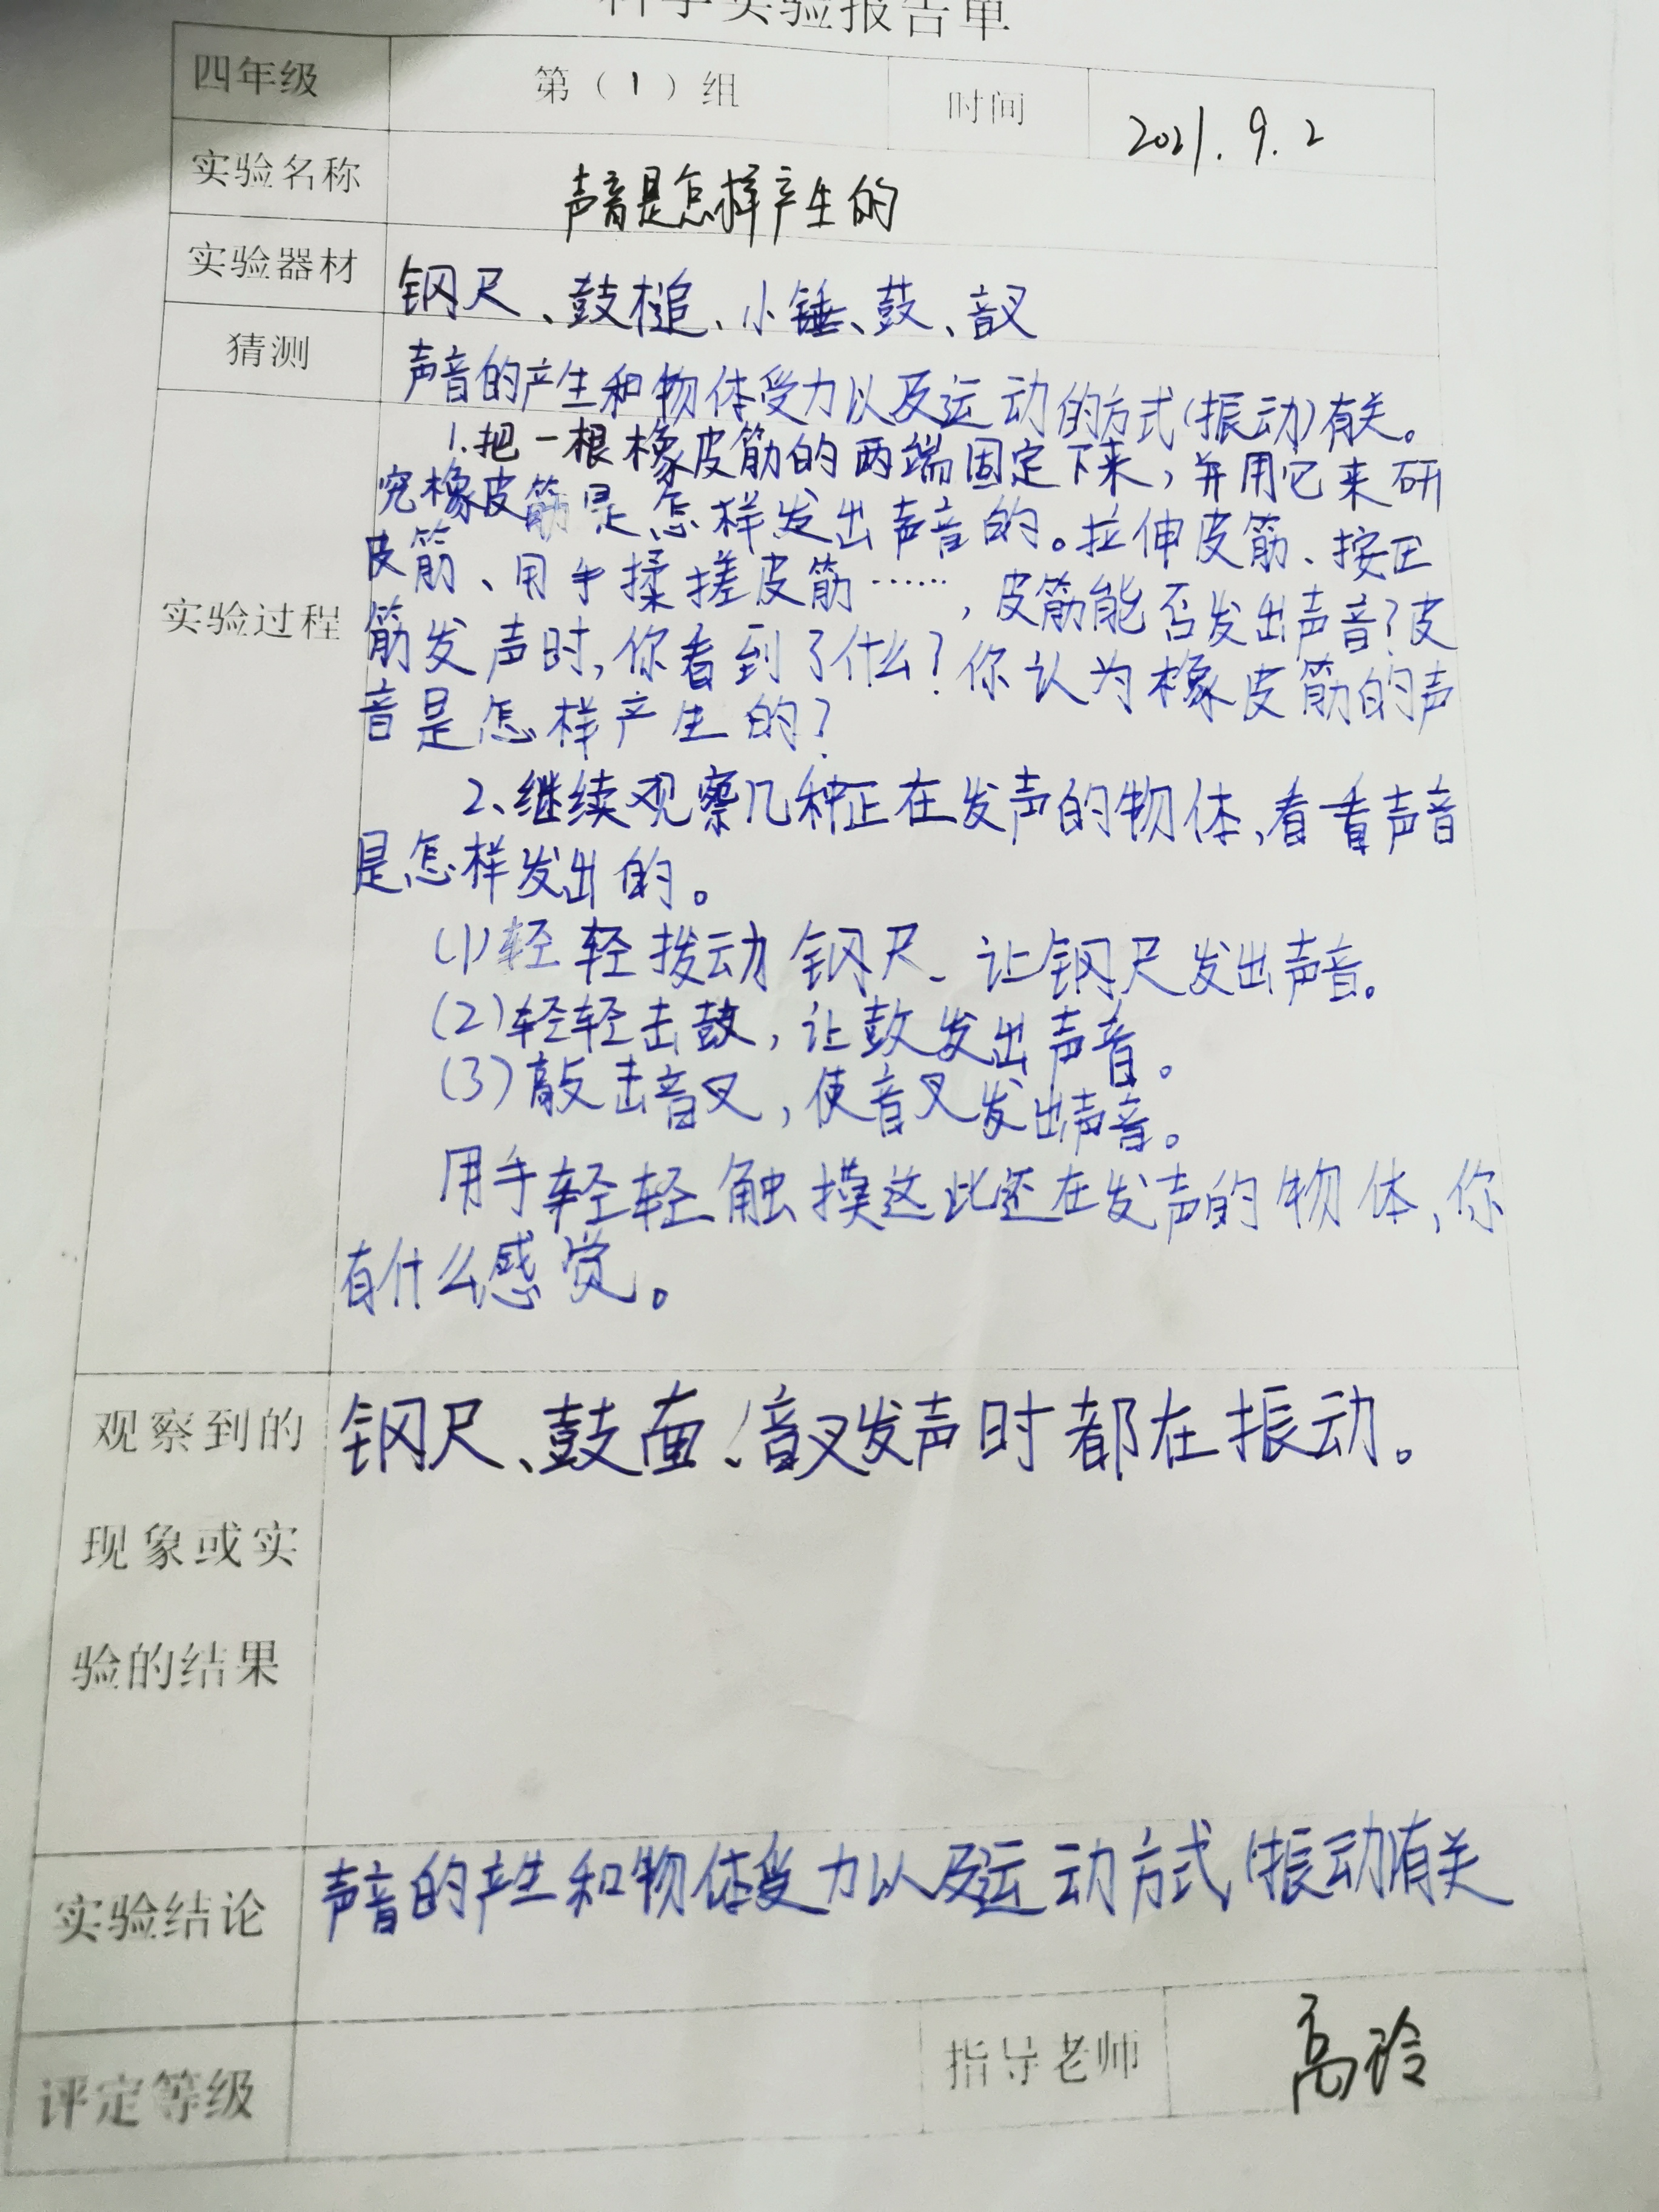 科学实验报告单
四年级 第（1）组 时间 2021.9.2
实验名称 声音是怎样产生的
实验器材 钢尺、鼓槌、小锤、鼓、音叉
猜测 声音的产生和物体受力以及运动的方式(振动)有关。
实验过程
1.把一根橡皮筋的两端固定下来，并用它来研
究橡皮筋是怎样发出声音的。拉伸皮筋、按压
皮筋、用手揉搓皮筋……，皮筋能否发出声音？皮
筋发声时，你看到了什么？你认为橡皮筋的声
音是怎样产生的？
2、继续观察几种正在发声的物体，看看声音
是怎样发出的。
(1)轻轻拨动钢尺、让钢尺发出声音。
(2)轻轻击鼓，让鼓发出声音。
(3)敲击音叉，使音叉发出声音。
用手轻轻触摸这些还在发声的物体，你
有什么感觉。
观察到的
现象或实
验的结果
钢尺、鼓面、音叉发声时都在振动。
实验结论 声音的产生和物体受力以及运动方式(振动有关
评定等级 指导老师 高玲